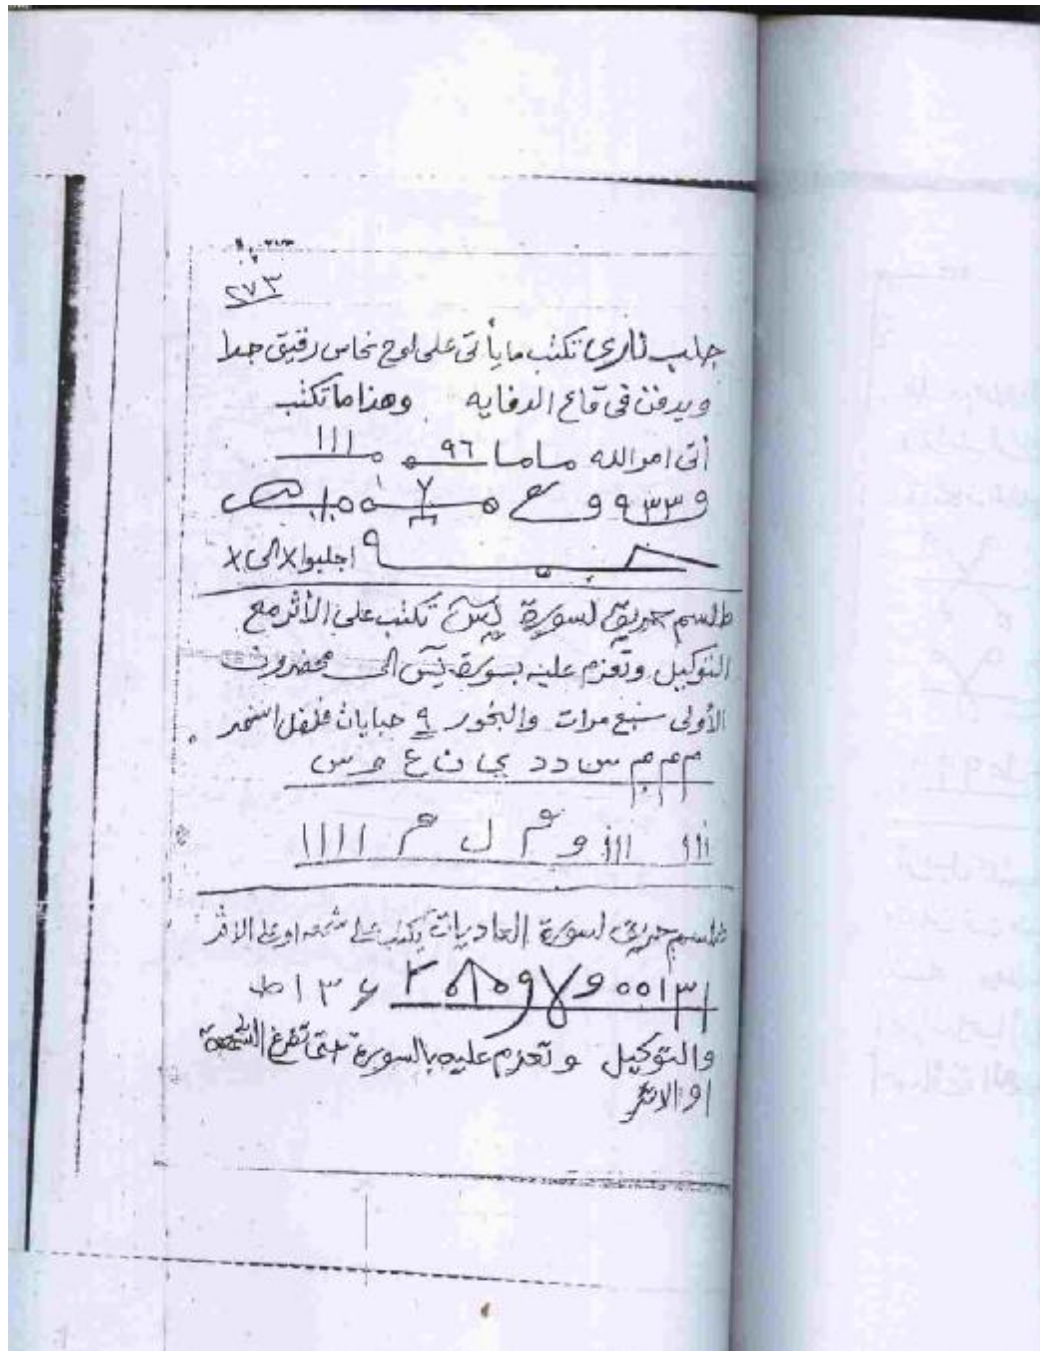 ٢٧٣
جلب ناري تكتب ما يأتي على لوح نحاس رقيق جدا
ويدفن في قاع الدفايه وهذا ما تكتب
أتى امر الله ماما ٩٦ ااا
اجلبوا x الى x
طلسم حريق لسورة يس تكتب على الأثر مع
التوكيل وتعزم عليه بسورة يس الى محضرون
الأولى سبع مرات والبخور ٩ حبايات فلفل اسمر
م م م م س د د ي ن ع م س
طلسم حريق لسورة العاديات يكتب على شمعه او على الاثر
والتوكيل وتعزم عليه بالسورة حتى تفرغ الشمعة
او الاثر